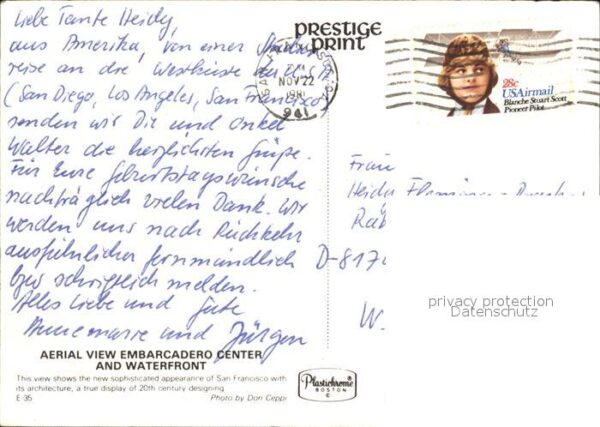 Liebe Tante Heidy,
aus Amerika, von einer Studien-
reise an die Westküste der USA
(San Diego, Los Angeles, San Francisco)
senden wir Dir und Onkel
Walter die herzlichsten Grüße.
Für Eure Geburtstagswünsche
nachträglich vielen Dank. Wir
werden uns nach Rückkehr
ausführlicher fernmündlich
bzw schriftlich melden.
Alles Liebe und Gute
Annemarie und Jürgen
AERIAL VIEW EMBARCADERO CENTER
AND WATERFRONT
This view shows the new sophisticated appearance of San Francisco with
its architecture, a true display of 20th century designing.
E-35
Photo by Don Ceppi
PRESTIGE
PRINT
NOV 22
1981
941
28c
USAirmail
Blanche Stuart Scott
Pioneer Pilot
Frau
D-817
W.
privacy protection
Datenschutz
Plastichrome
BOSTON
©